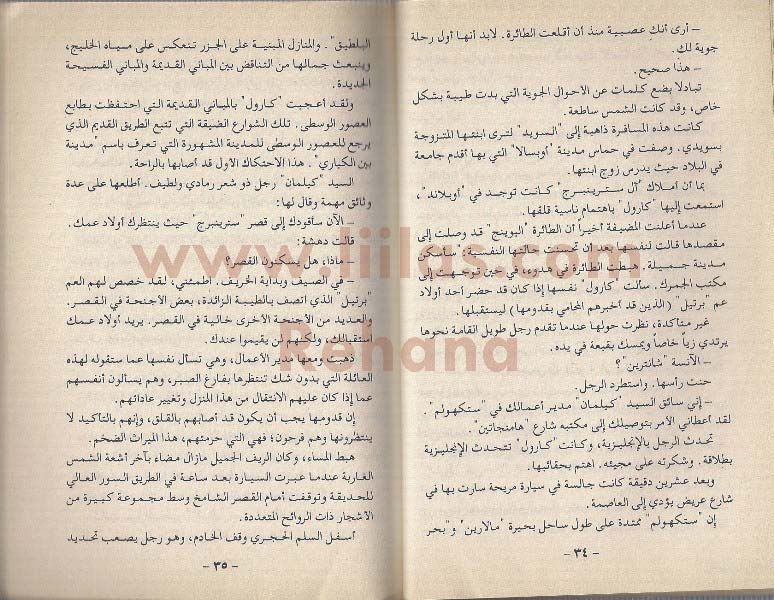 - أرى أنك عصبية منذ أن أقلعت الطائرة. لابد أنها أول رحلة
جوية لك.
- هذا صحيح.
تبادلا بضع كلمات عن الأحوال الجوية التي بدت طيبة بشكل
خاص، وقد كانت الشمس ساطعة.
كانت هذه المسافرة ذاهبة إلى "السويد" لترى ابنتها المتزوجة
بسويدي. وصفت في حماس مدينة "أوبسالا" التي بها أقدم جامعة
في البلاد حيث يدرس زوج ابنتها.
بما أن أملاك "آل سترينبرج" كانت توجد في "أوبلاند"،
استمعت إليها "كارول" باهتمام ناسية قلقها.
عندما أعلنت المضيفة أخيراً أن الطائرة "البوينج" قد وصلت إلى
مقصدها قالت لنفسها بعد أن تحسنت حالتها النفسية: "سأسكن
مدينة جميلة. هبطت الطائرة في هدوء، في حين توجهت إلى
مكتب الجمرك. سألت "كارول" نفسها إذا كان قد حضر أحد أولاد
عم "برتيل" (الذين قد أخبرهم المحامي بقدومها) ليستقبلها.
غير متأكدة، نظرت حولها عندما تقدم رجل طويل القامة نحوها
يرتدي زياً خاصاً ويمسك بقبعة في يده.
- الآنسة "شانترين"؟
حنت رأسها. واستطرد الرجل.
- إني سائق السيد "كيلمان" مدير أعمالك في "ستكهولم".
لقد أعطاني الأمر بتوصيلك إلى مكتبه شارع "هامنجاتين".
تحدث الرجل بالإنجليزية، وكانت "كارول" تتحدث الإنجليزية
بطلاقة. وشكرته على مجيئه. اهتم بحقائبها.
وبعد عشرين دقيقة كانت جالسة في سيارة مريحة سارت بها في
شارع عريض يؤدي إلى العاصمة.
إن "ستكهولم" ممتدة على طول ساحل بحيرة "مالارين" و"بحر
- ٣٤ -
البلطيق". والمنازل المبنية على الجزر تنعكس على مياه الخليج،
وينبعث جمالها من التناقض بين المباني القديمة والمباني الفسيحة
الجديدة.
ولقد أعجبت "كارول" بالمباني القديمة التي احتفظت بطابع
العصور الوسطى. تلك الشوارع الضيقة التي تتبع الطريق القديم الذي
يرجع للعصور الوسطى للمدينة المشهورة التي تعرف باسم "مدينة
بين الكباري". هذا الاحتكاك الأول قد أصابها بالراحة.
السيد "كيلمان" رجل ذو شعر رمادي ولطيف. أطلعها على عدة
وثائق مهمة وقال لها:
- الآن سأقودك إلى قصر "سترينبرج" حيث ينتظرك أولاد عمك.
قالت دهشة:
- ماذا، هل يسكنون القصر؟
- في الصيف وبداية الخريف. اطمئني، لقد خصص لهم العم
"برتيل" الذي اتصف بالطيبة الزائدة، بعض الأجنحة في القصر.
والعديد من الأجنحة الأخرى خالية في القصر. يريد أولاد عمك
استقبالك، ولكنهم لن يقيموا عندك.
ذهبت ومعها مدير الأعمال، وهي تسأل نفسها عما ستقوله لهذه
العائلة التي بدون شك تنتظرها بفارغ الصبر، وهم يسألون أنفسهم
عما إذا كان عليهم الانتقال من هذا المنزل وتغيير عاداتهم.
إن قدومها يجب أن يكون قد أصابهم بالقلق، وإنهم بالتأكيد لا
ينتظرونها وهم فرحون؛ فهي التي حرمتهم، هذا الميراث الضخم.
هبط المساء، وكان الريف الجميل مازال مضاء بآخر أشعة الشمس
الغاربة عندما عبرت السيارة بعد ساعة في الطريق السور العالي
للحديقة وتوقفت أمام القصر الشامخ وسط مجموعة كبيرة من
الأشجار ذات الروائح المتعددة.
أسفل السلم الحجري وقف الخادم، وهو رجل يصعب تحديد
- ٣٥ -
www.liilas.com
Rehana